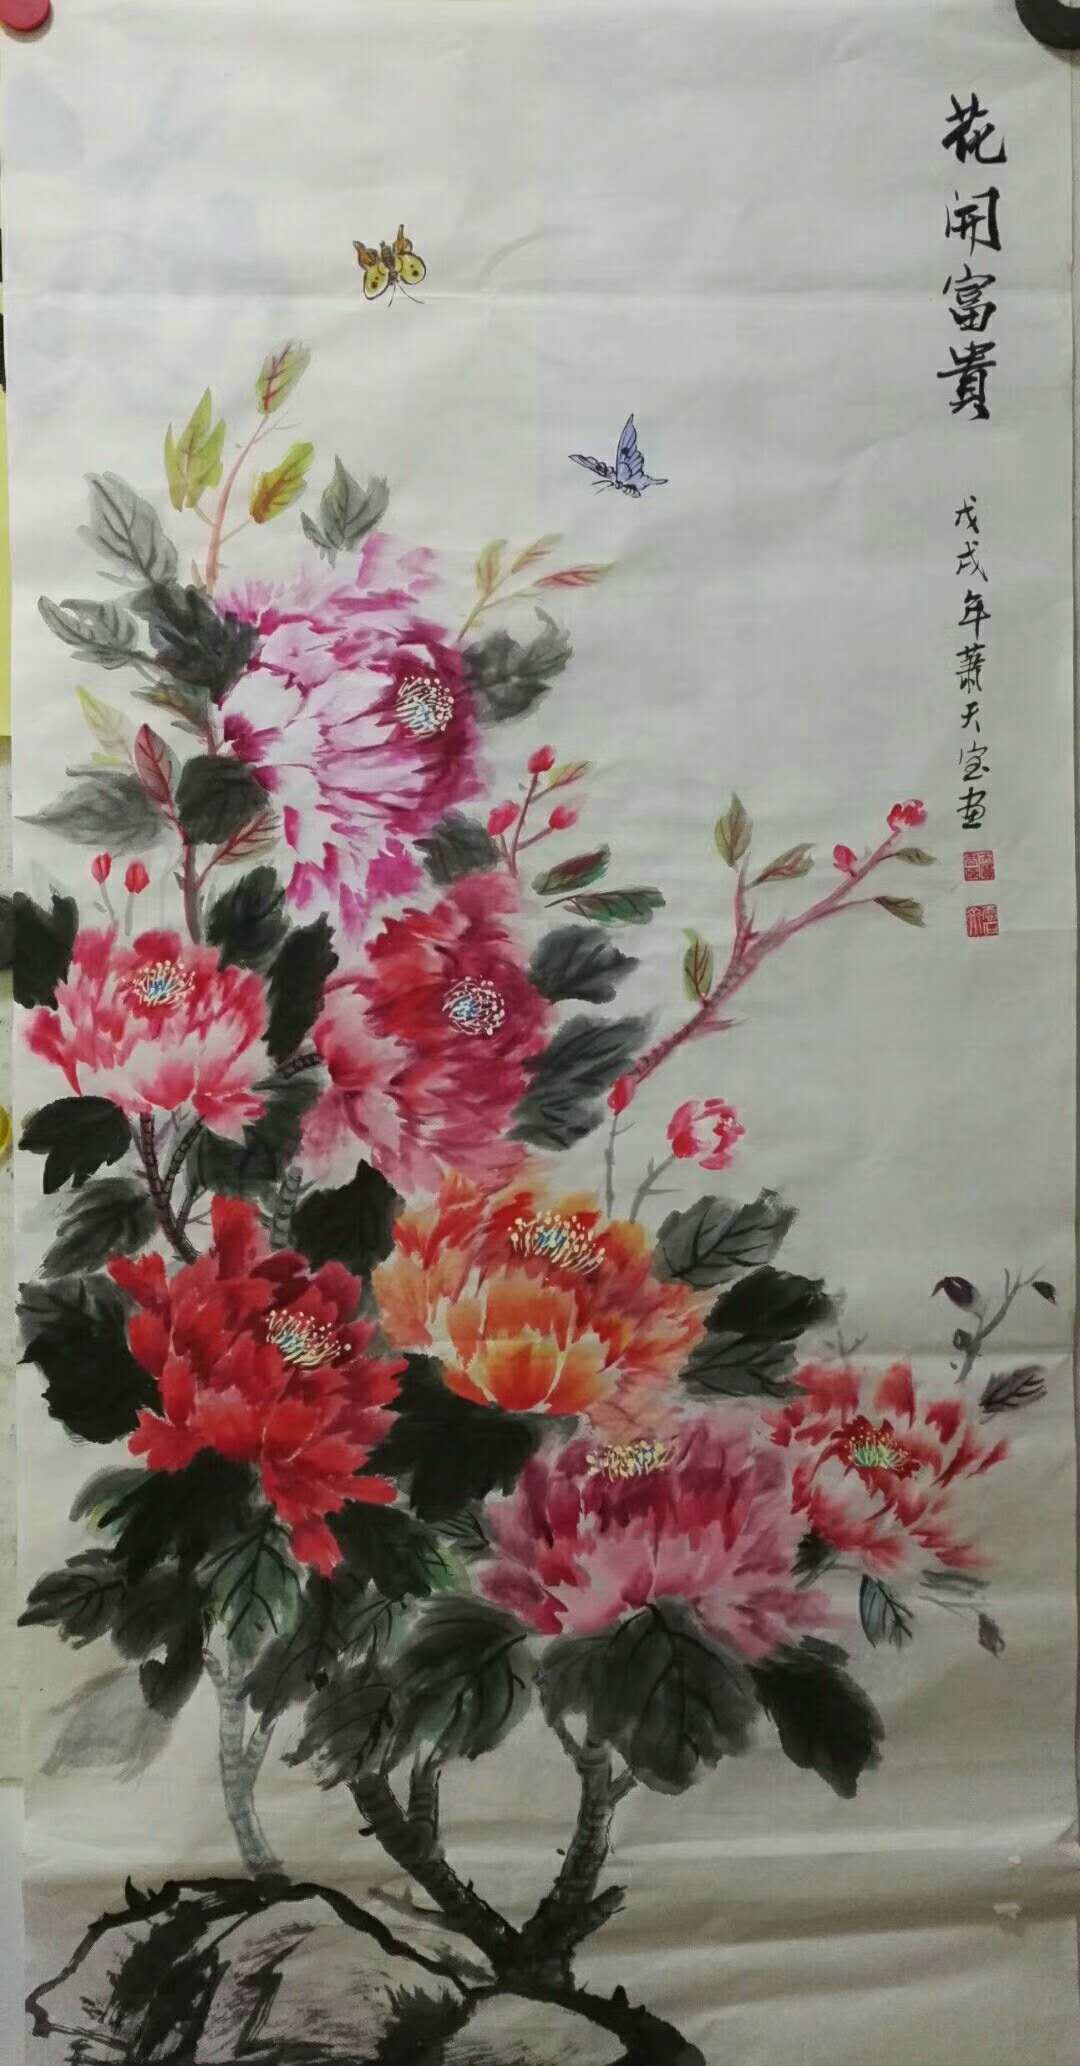 花開富貴
戊戌年蕭天宝画